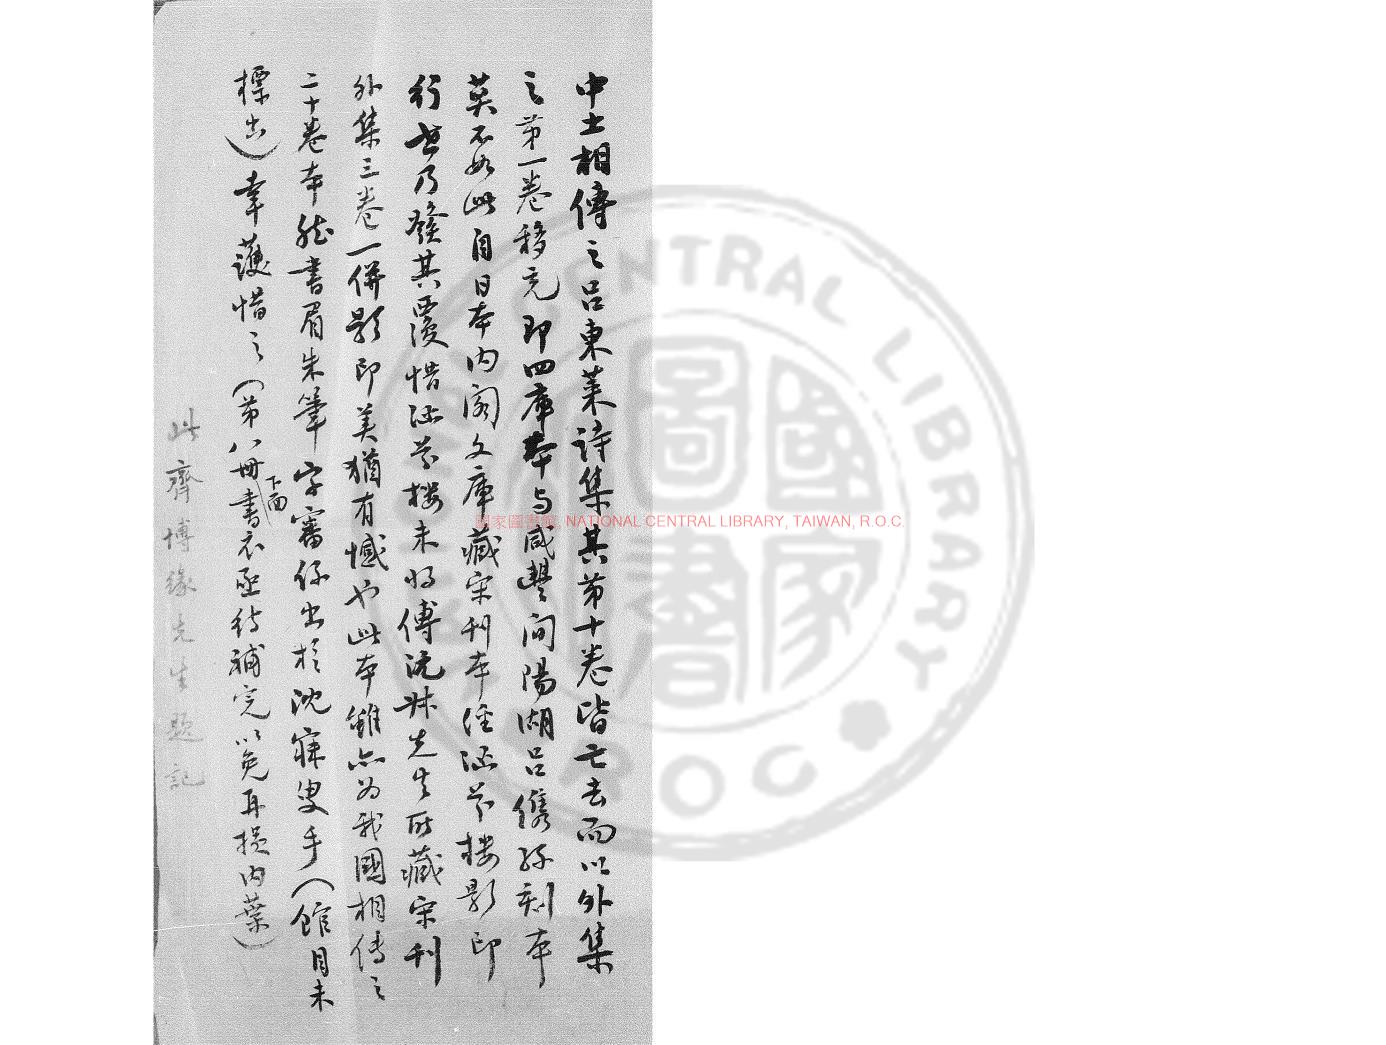 中土相傳之呂東萊詩集其第十卷皆亡去而以外集
之第一卷移充即四庫本与咸豐间陽湖呂儁孫刻本
莫不如此自日本内阁文庫藏宋刊本經涵芬楼影印
行世乃發其覆惜涵芬楼未将傅沅叔先生所藏宋刊
外集三卷一併影印美猶有憾也此本雖亦为我國相傳之
二十卷本然書眉朱筆字審係出於沈寐叟手（館目未
標出）幸護惜之（第八冊書衣下面亟待補完以免再損内葉）
此齊博緣先生題記
國家圖書館, NATIONAL CENTRAL LIBRARY, TAIWAN, R.O.C.
NATIONAL CENTRAL LIBRARY
R.O.C
國家圖書